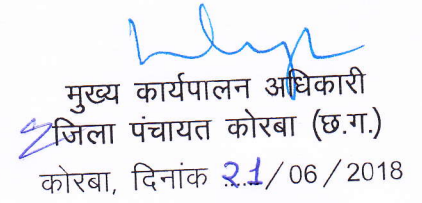 मुख्य कार्यपालन अधिकारी
जिला पंचायत कोरबा (छ.ग.)
कोरबा, दिनांक 21/06/2018